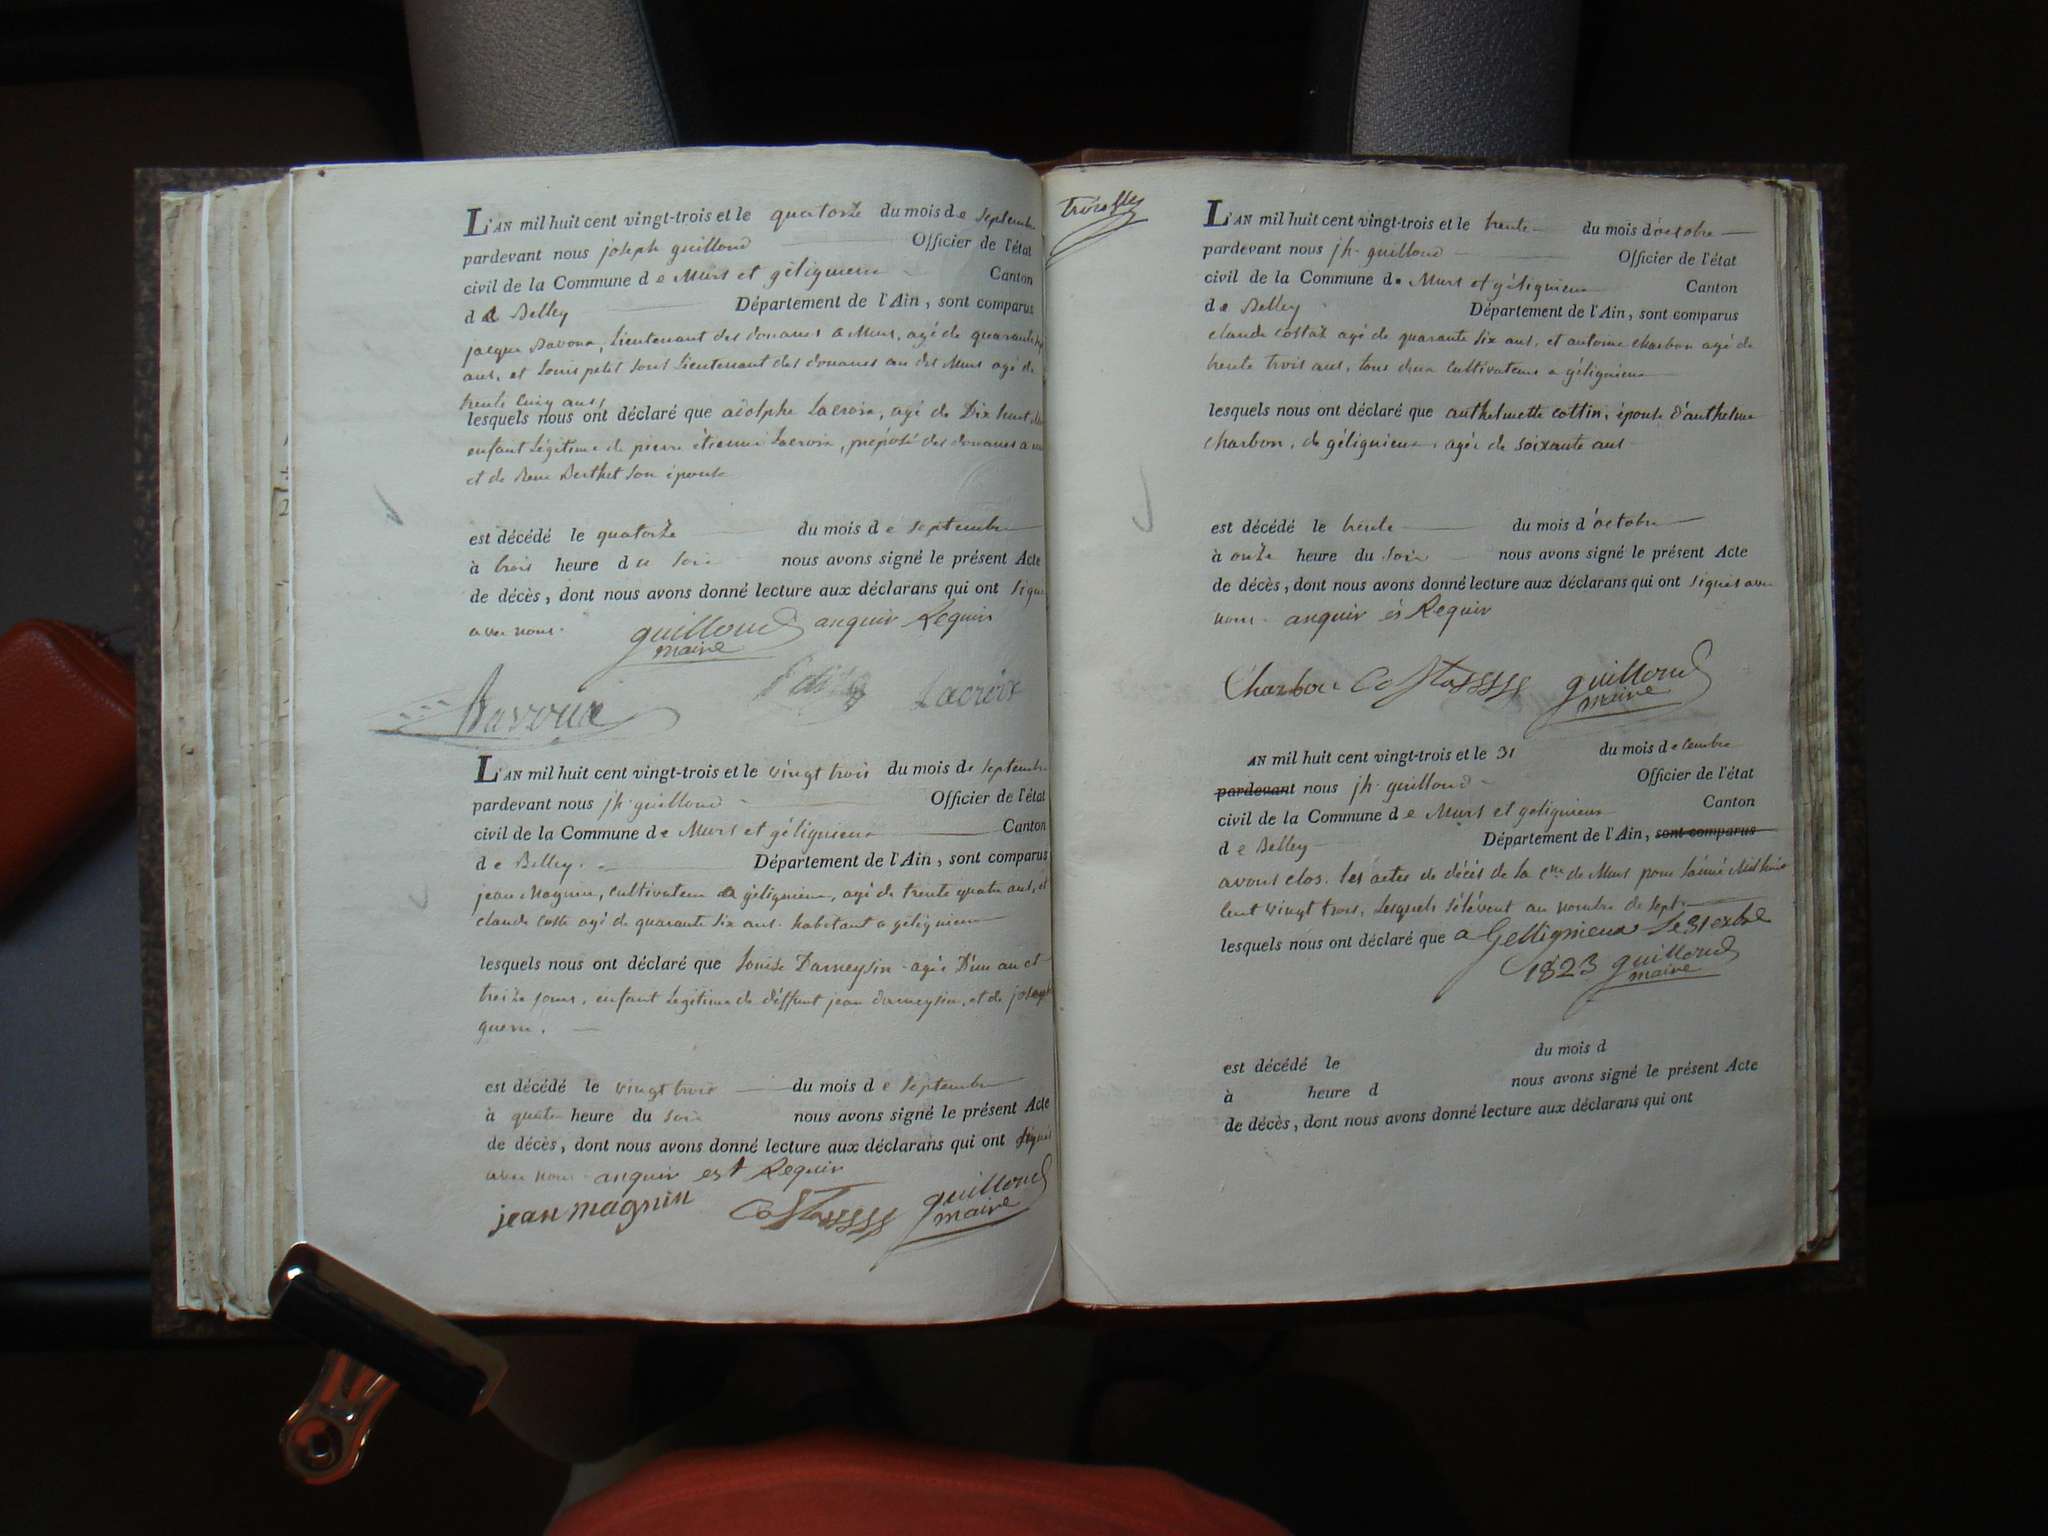 L'AN mil huit cent vingt-trois et le quatorze du mois de septembre
pardevant nous joseph guilloud Officier de l'état
civil de la Commune de Murs et gélignieux Canton
de Belley Département de l'Ain, sont comparus
jacque Bavoux, Lieutenant des douanes a Murs, agé de quarante
ans, et Louis petit sous Lieutenant des douanes au dit Murs agé de
trente cinq ans,
lesquels nous ont déclaré que adolphe Lacroix, agé de Dix huit
enfant Légitime de pierre étienne Lacroix, préposé des douanes a
et de Berthet son épouse
est décédé le quatorze du mois de septembre
à trois heure du soir nous avons signé le présent Acte
de décès, dont nous avons donné lecture aux déclarans qui ont signé
avec nous. anquir Requir
guilloud
maire
Bavoux petit Lacroix
L'AN mil huit cent vingt-trois et le vingt trois du mois de septembre
pardevant nous jh. guilloud Officier de l'état
civil de la Commune de Murs et gélignieux Canton
de Belley. Département de l'Ain, sont comparus
jean Magnin, cultivateur a gélignieux, agé de trente quatre ans, et
claude agé de quarante six ans. habitant a gélignieux
lesquels nous ont déclaré que Louise Darmeysin agée D'un an et
treize jours, enfant Legitime de déffunt jean darmeysin, et de
guerre.
est décédé le vingt trois du mois de septembre
à quatre heure du soir nous avons signé le présent Acte
de décès, dont nous avons donné lecture aux déclarans qui ont signés
avec nous anquir est Requir
jean magnin Costaz guilloud
maire
L'AN mil huit cent vingt-trois et le trente du mois d'octobre
pardevant nous jh. guilloud Officier de l'état
civil de la Commune de Murs et gélignieux Canton
de Belley Département de l'Ain, sont comparus
claude costaz agé de quarante six ans, et antoine charbon agé de
trente trois ans, tous deux cultivateurs a gélignieux
lesquels nous ont déclaré que anthelmette cottin, épouse d'anthelme
charbon, de gélignieux, agée de soixante ans
est décédé le trente du mois d'octobre
à onze heure du soir nous avons signé le présent Acte
de décès, dont nous avons donné lecture aux déclarans qui ont signés avec
nous. anquir és Requir
Charbon Costaz guilloud
maire
AN mil huit cent vingt-trois et le 31 du mois decembre
pardevant nous jh. guilloud Officier de l'état
civil de la Commune de Murs et gelignieux Canton
de Belley Département de l'Ain, sont comparus
avons clos. les actes de décès de la cne de Murs pour l'année Mil huit
cent vingt trois, Lesquels s'élévent au nombre de sept.
lesquels nous ont déclaré que a Gellignieux Le 31 exbre
1823 guilloud
maire
est décédé le du mois d
à heure d nous avons signé le présent Acte
de décès, dont nous avons donné lecture aux déclarans qui ont